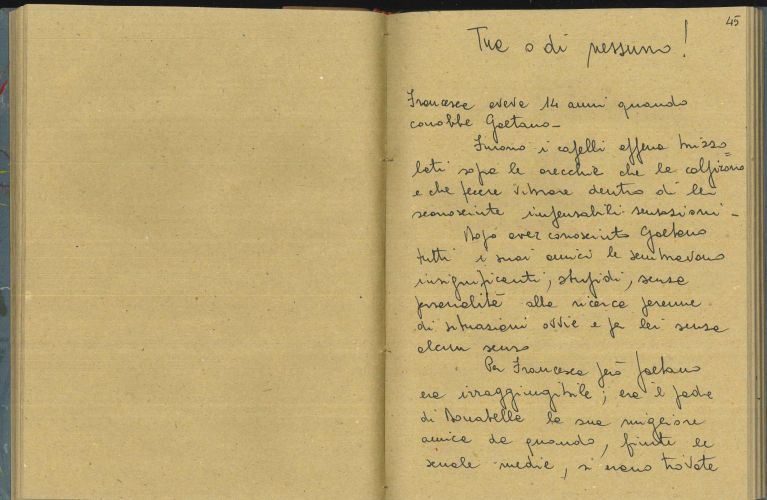 45
Tua o di nessuno!
Francesca aveva 14 anni quando
conobbe Gaetano_
Furono i capelli appena brizzo=
lati sopra le orecchie che la colpirono
e che fecero vibrare dentro di lei
sconosciute impensabili sensazioni_
Dopo aver conosciuto Gaetano
tutti i suoi amici le sembravano
insignificanti, stupidi, senza
personalità alla ricerca perenne
di situazioni ovvie e per lei senza
alcun senso
Per Francesca però Gaetano
era irraggiungibile; era il padre
di Donatella la sua migliore
amica da quando, finite le
scuole medie, si erano trovate